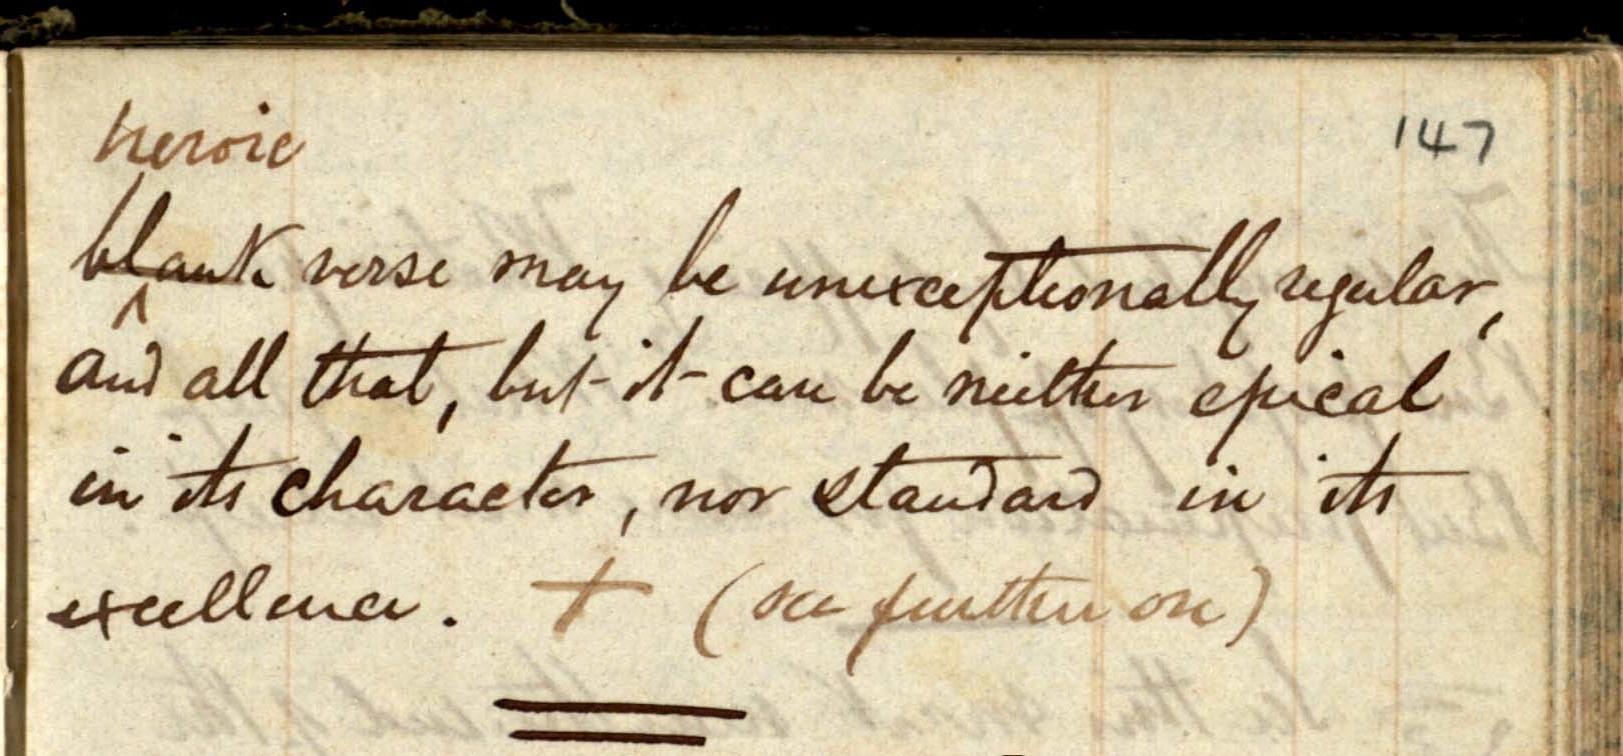 147
heroic
blank verse may be unexceptionally regular,
and all that, but it can be neither epical
in its character, nor standard in its
excellence. + (see further on)